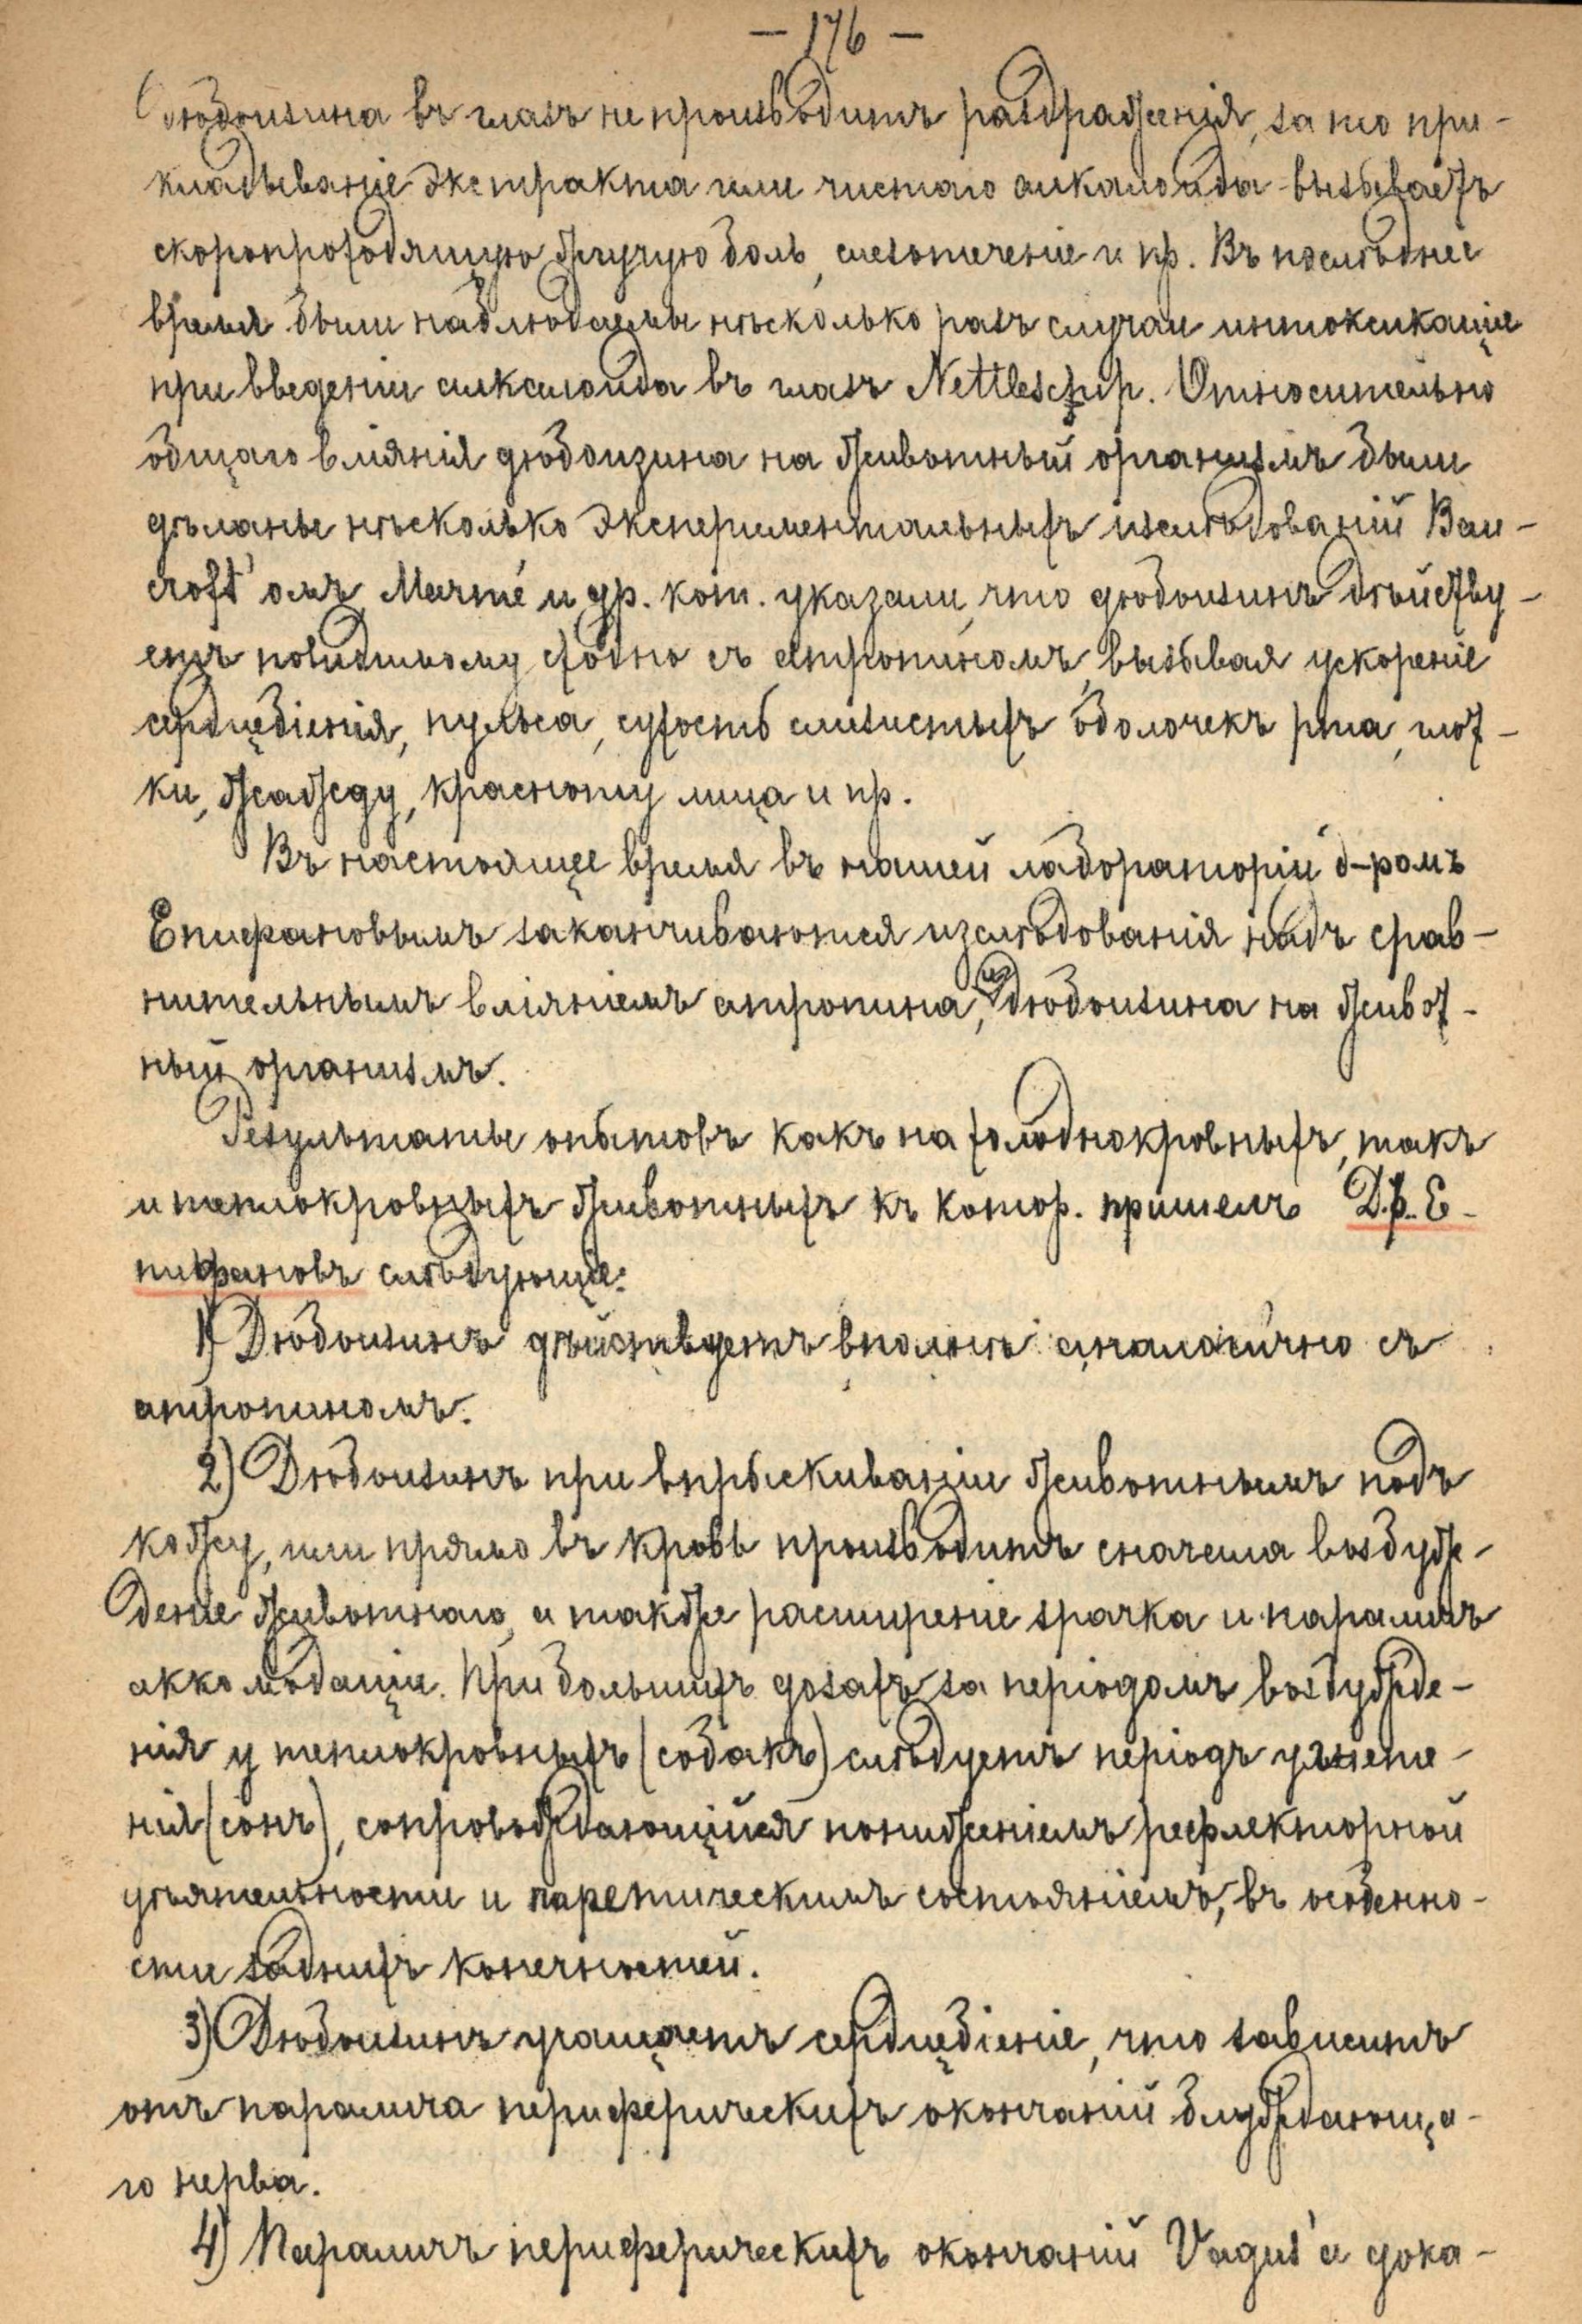 — 176 —
дюбоизина въ глазъ не производитъ раздраженія, за то при-
кладываніе экстракта или чистаго алкалоида вызываетъ
скоропроходящую жгучую боль, слезотеченіе и пр. Въ последнее
время были наблюдаемы нѣсколько разъ случаи интоксикаціи
при введеніи алкалоида въ глазъ Nettleschip. Относительно
общаго вліянія дюбоизина на животный организмъ были
дѣланы нѣсколько экспериментальныхъ изслѣдованій Ban-
croft'омъ, Marmé и др. кот. указали, что дюбоизинъ дѣйству-
етъ повидимому сходно съ атропиномъ, вызывая ускореніе
сердцебіенія, пульса, сухость слизистыхъ оболочекъ рта, глот-
ки, жажду, красноту лица и пр.
Въ настоящее время въ нашей лабораторіи д-ромъ
Епифановымъ заканчиваются изслѣдованія надъ срав-
нительнымъ вліяніемъ атропина, и дюбоизина на живот-
ный организмъ.
Результаты опытовъ какъ на холоднокровныхъ, такъ
и теплокровныхъ животныхъ къ котор. пришелъ Д.р. Е-
пифановъ слѣдующіе:
1) Дюбоизинъ дѣйствуетъ вполнѣ аналогично съ
атропиномъ.
2) Дюбоизинъ при впрыскиваніи животнымъ подъ
кожу, или прямо въ кровь производитъ сначала возбуж-
деніе животнаго, а также расширеніе зрачка и параличъ
аккомодаціи. При большихъ дозахъ за періодомъ возбужде-
нія у теплокровныхъ (собакъ) слѣдуетъ періодъ угнете-
нія (сонъ), сопровождающійся пониженіемъ рефлекторной
дѣятельности и паретическимъ состояніемъ, въ особенно-
сти заднихъ конечностей.
3) Дюбоизинъ учащаетъ сердцебіеніе, что зависитъ
отъ паралича периферическихъ окончаній блуждающа-
го нерва.
4) Параличъ периферическихъ окончаній Vagus'а дока-